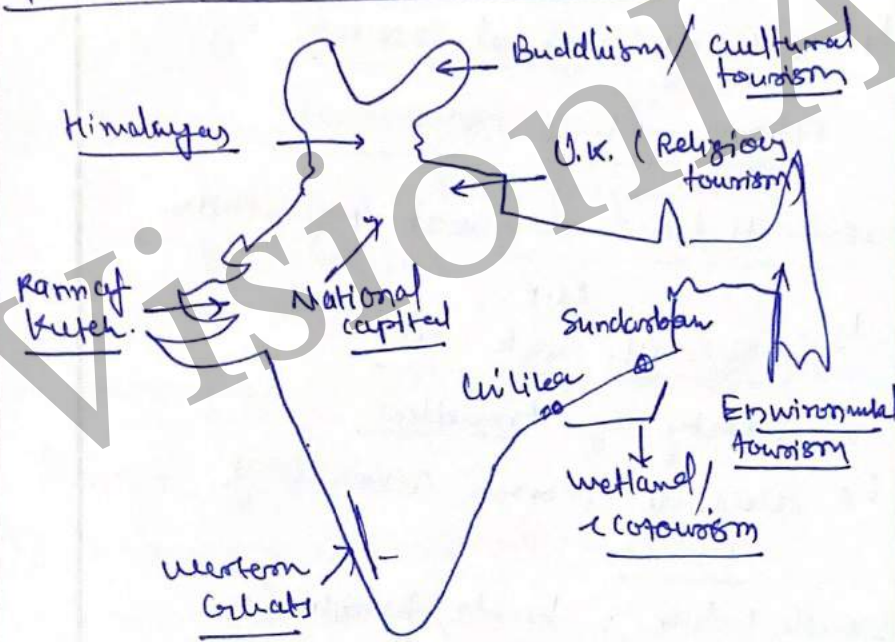 Buddhism / cultural
tourism
Himalayas
U.K. (Religious
tourism)
Rann of
Kutch.
National
capital
Sundarban
Chilika
Environmental
tourism
wetland/
ecotourism
Western
Ghats
VisionIA